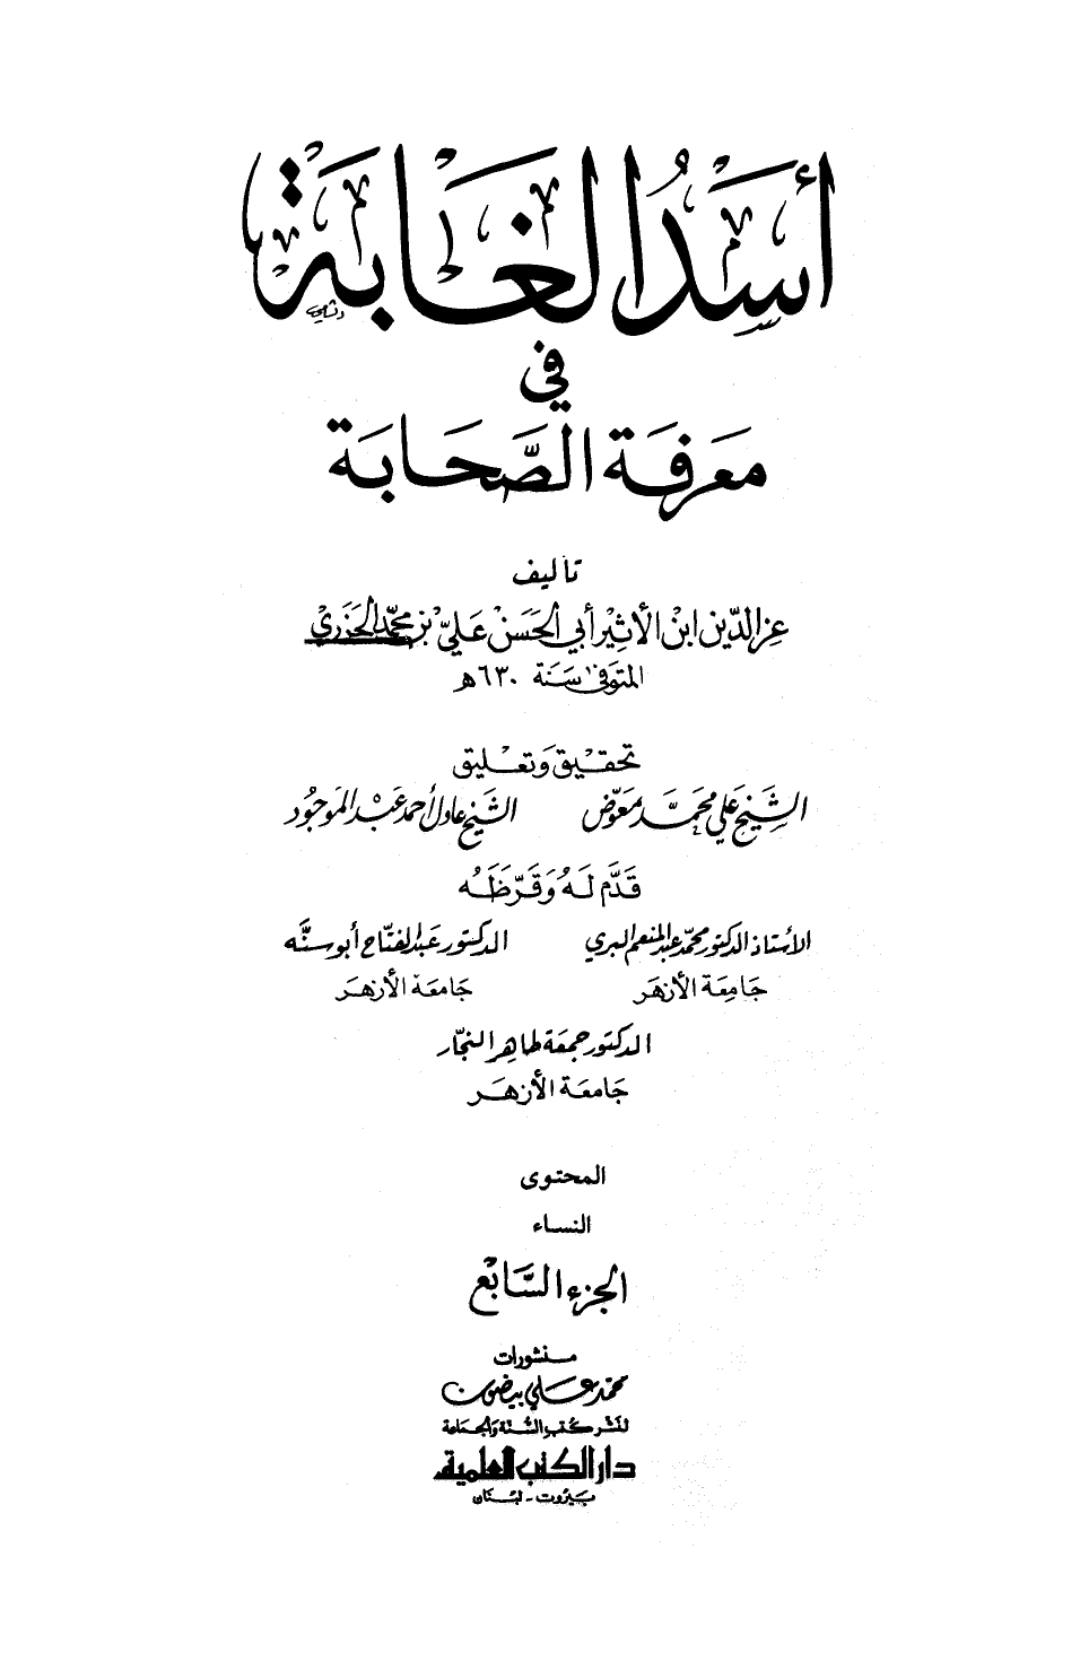 أسَدُ الغَابَة
في
مَعرفَة الصَّحَابَة
تأليف
عز الدّين ابن الأثير أبي الحَسَن عَليّ بن محمّد الجَزَري
المتوفى سَنَة ٦٣٠ هـ
تحقيق وَتعليق
الشيخ عَلي محمَّد معَوّض الشيخ عادل أحمد عَبْد الموجُود
قَدَّم لَهُ وَقَرّظَهُ
الأستاذ الدكتور محمّد عبد المنعم البري الدكتور عَبد الفتّاح أبو سنَّه
جَامِعَة الأزهَر جَامعَة الأزهَر
الدكتور جمعَة طاهِر النجّار
جَامعَة الأزهَر
المحتوى
النساء
الجزء السَّابع
منشورات
محمد عَلي بيضون
لنَشر كتب السُّنَّة وَالجمَاعة
دار الكتب العلمية
بَيرُوت - لبْنان